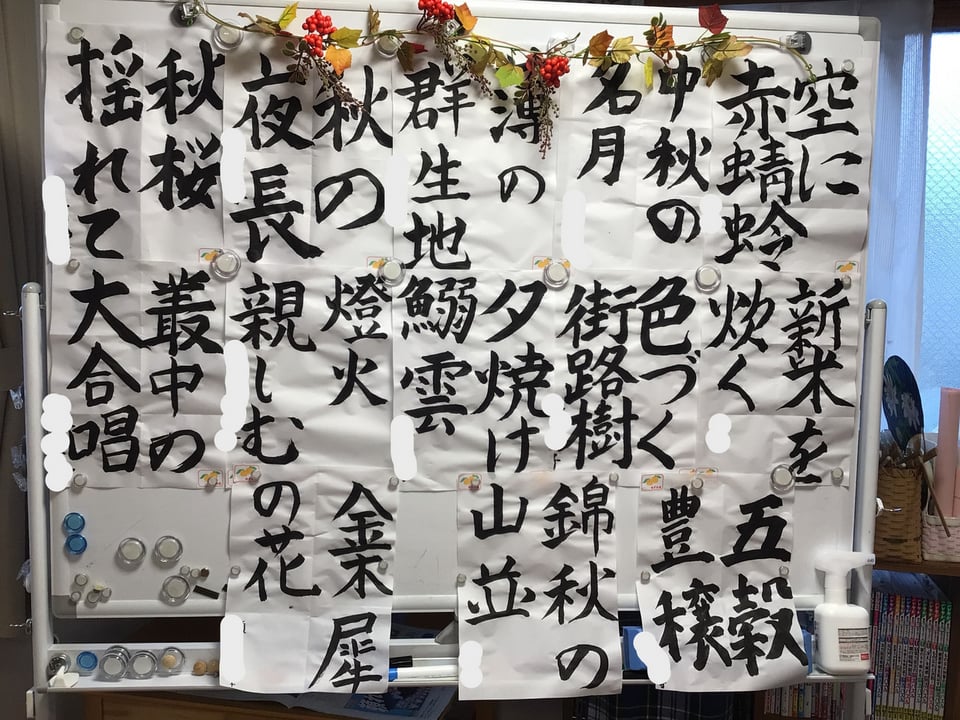 空に
赤蜻蛉
中秋の
名月
薄の
群生地
秋の
夜長
秋桜
揺れて
新米を
炊く
色づく
街路樹
夕焼け
鰯雲
燈火
親しむ
叢中の
大合唱
五穀
豊穣
錦秋の
山並
金木犀
の花